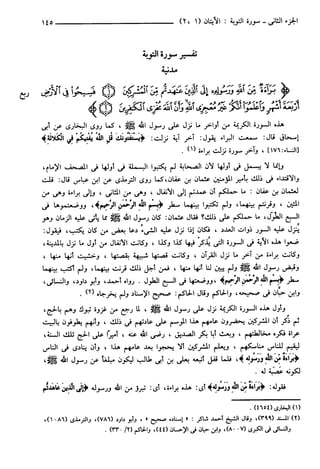 الجزء الثاني - سورة التوبة : الآيتان (١ ، ٢) ١٤٥
تفسير سورة التوبة
مدنية
﴿ بَرَآءَةٌ مِّنَ ٱللَّهِ وَرَسُولِهِۦٓ إِلَى ٱلَّذِينَ عَٰهَدتُّم مِّنَ ٱلْمُشْرِكِينَ ۝ فَسِيحُوا۟ فِى ٱلْأَرْضِ
ربع
أَرْبَعَةَ أَشْهُرٍ وَٱعْلَمُوٓا۟ أَنَّكُمْ غَيْرُ مُعْجِزِى ٱللَّهِ وَأَنَّ ٱللَّهَ مُخْزِى ٱلْكَٰفِرِينَ ۝ ﴾
هذه السورة الكريمة من أواخر ما نزل على رسول الله ﷺ ، كما روى البخاري عن أبي
إسحاق قال: سمعت البراء يقول: آخر آية نزلت: ﴿يَسْتَفْتُونَكَ قُلِ ٱللَّهُ يُفْتِيكُمْ فِى ٱلْكَلَٰلَةِ﴾
[النساء:١٧٦] ، وآخر سورة نزلت براءة (١) .
وإنما لا يبسمل في أولها لأن الصحابة لم يكتبوا البسملة في أولها في المصحف الإمام،
والاقتداء في ذلك بأمير المؤمنين عثمان بن عفان، كما روى الترمذي عن ابن عباس قال: قلت
لعثمان بن عفان : ما حملكم أن عمدتم إلى الأنفال ، وهي من المثاني ، وإلى براءة وهي من
المئين ، وقرنتم بينهما، ولم تكتبوا بينهما سطر ﴿بِسْمِ ٱللَّهِ ٱلرَّحْمَٰنِ ٱلرَّحِيمِ﴾، ووضعتموها في
السبع الطول، ما حملكم على ذلك؟ فقال عثمان: كان رسول الله ﷺ مما يأتي عليه الزمان وهو
يُنزل عليه السور ذوات العدد ، فكان إذا نزل عليه الشيء دعا بعض من كان يكتب، فيقول:
ضعوا هذه الآية في السورة التي يُذكر فيها كذا وكذا ، وكانت الأنفال من أول ما نزل بالمدينة،
وكانت براءة من آخر ما نزل من القرآن ، وكانت قصتها شبيهة بقصتها ، وخشيت أنها منها ،
وقبض رسول الله ﷺ ولم يبين لنا أنها منها ، فمن أجل ذلك قرنت بينهما، ولم أكتب بينهما
سطر ﴿بِسْمِ ٱللَّهِ ٱلرَّحْمَٰنِ ٱلرَّحِيمِ﴾، ووضعتها في السبع الطول . رواه أحمد، وأبو داود، والنسائي،
وابن حبان في صحيحه، والحاكم وقال الحاكم: صحيح الإسناد ولم يخرجاه (٢) .
وأول هذه السورة الكريمة نزل على رسول الله ﷺ ، لما رجع من غزوة تبوك وهم بالحج،
ثم ذكر أن المشركين يحضرون عامهم هذا الموسم على عادتهم في ذلك ، وأنهم يطوفون بالبيت
عراة فكره مخالطتهم ، وبعث أبا بكر الصديق ، رضي الله عنه ، أميرًا على الحج تلك السنة،
ليقيم للناس مناسكهم ، ويعلم المشركين ألا يحجوا بعد عامهم هذا ، وأن ينادي في الناس
﴿بَرَآءَةٌ مِّنَ ٱللَّهِ وَرَسُولِهِۦ﴾ ، فلما قفل أتبعه بعلي بن أبي طالب ليكون مبلغًا عن رسول الله ﷺ،
لكونه عَصَبة له .
فقوله: ﴿بَرَآءَةٌ مِّنَ ٱللَّهِ وَرَسُولِهِۦ﴾ أي: هذه براءة، أي: تبرؤ من الله ورسوله ﴿إِلَى ٱلَّذِينَ عَٰهَدتُّم
(١) البخاري (٤٦٥٤) .
(٢) المسند (٣٩٩)، وقال الشيخ أحمد شاكر : « إسناده صحيح »، وأبو داود (٧٨٦)، والترمذي (٣٠٨٦)،
والنسائي في الكبرى (٨٠٠٧)، وابن حبان في الإحسان (٤٤)، والحاكم (٢/ ٣٣٠) .